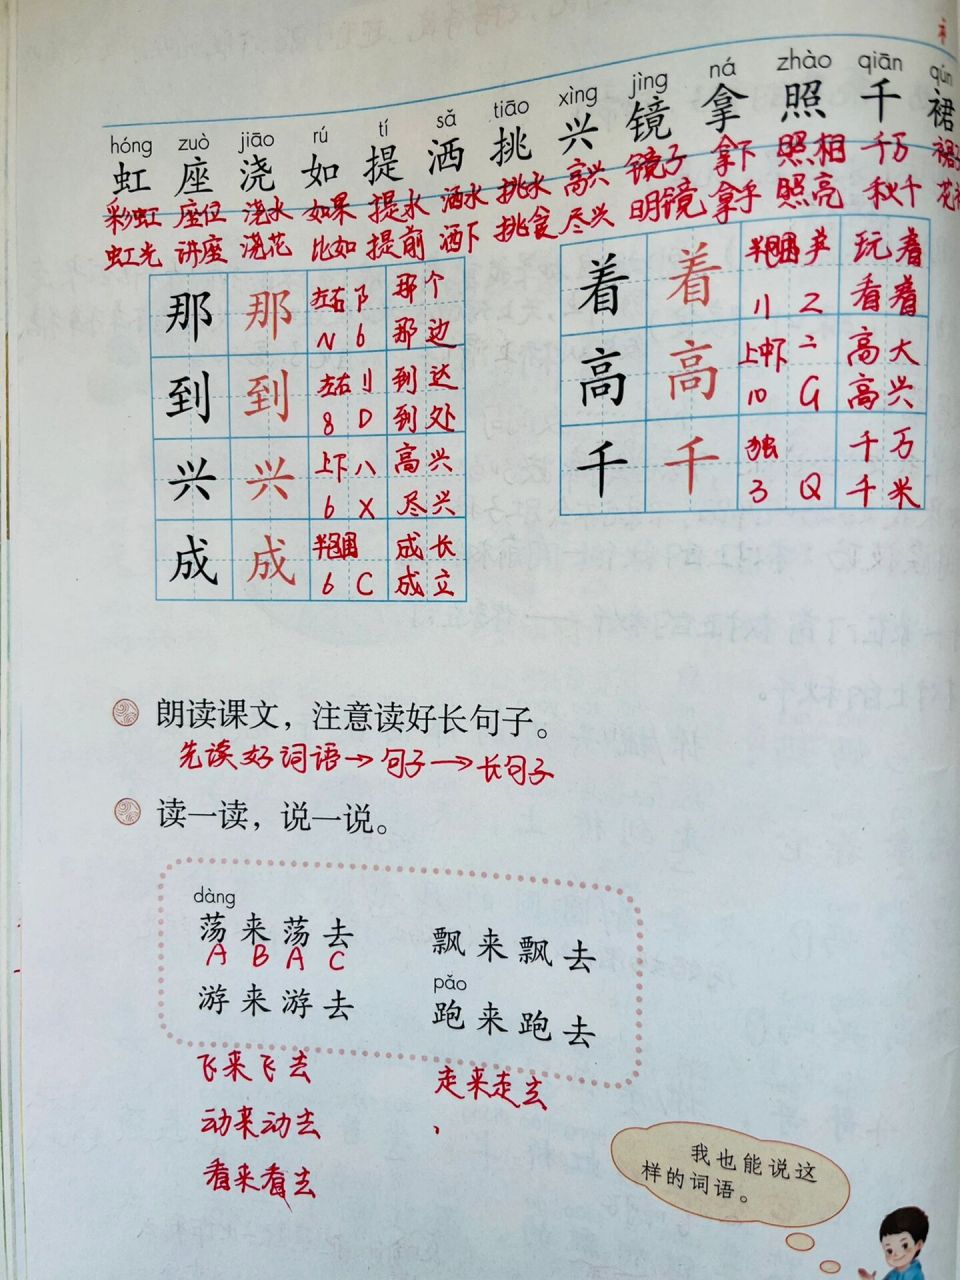 hóng zuò jiāo rú tí sǎ tiāo xìng jìng ná zhào qiān qún
虹 座 浇 如 提 洒 挑 兴 镜 拿 照 千 裙
彩虹 座位 浇水 如果 提水 洒水 挑水 高兴 镜子 拿下 照相 千万 裙子
虹光 讲座 浇花 比如 提前 洒下 挑食 尽兴 明镜 拿手 照亮 秋千
那 那 左右 阝 那个
N 6 那边
到 到 左右 刂 到达
8 D 到处
兴 兴 上下 八 高兴
6 X 尽兴
成 成 半包围 成长
6 C 成立
着 着 半包围 玩着
11 Z 看着
高 高 上中下 高大
10 G 高兴
千 千 独 千万
3 Q 千米
朗读课文，注意读好长句子。
先读好词语→句子→长句子
读一读，说一说。
dàng
荡来荡去 飘来飘去
A B A C
pǎo
游来游去 跑来跑去
飞来飞去 走来走去
动来动去
看来看去
我也能说这
样的词语。